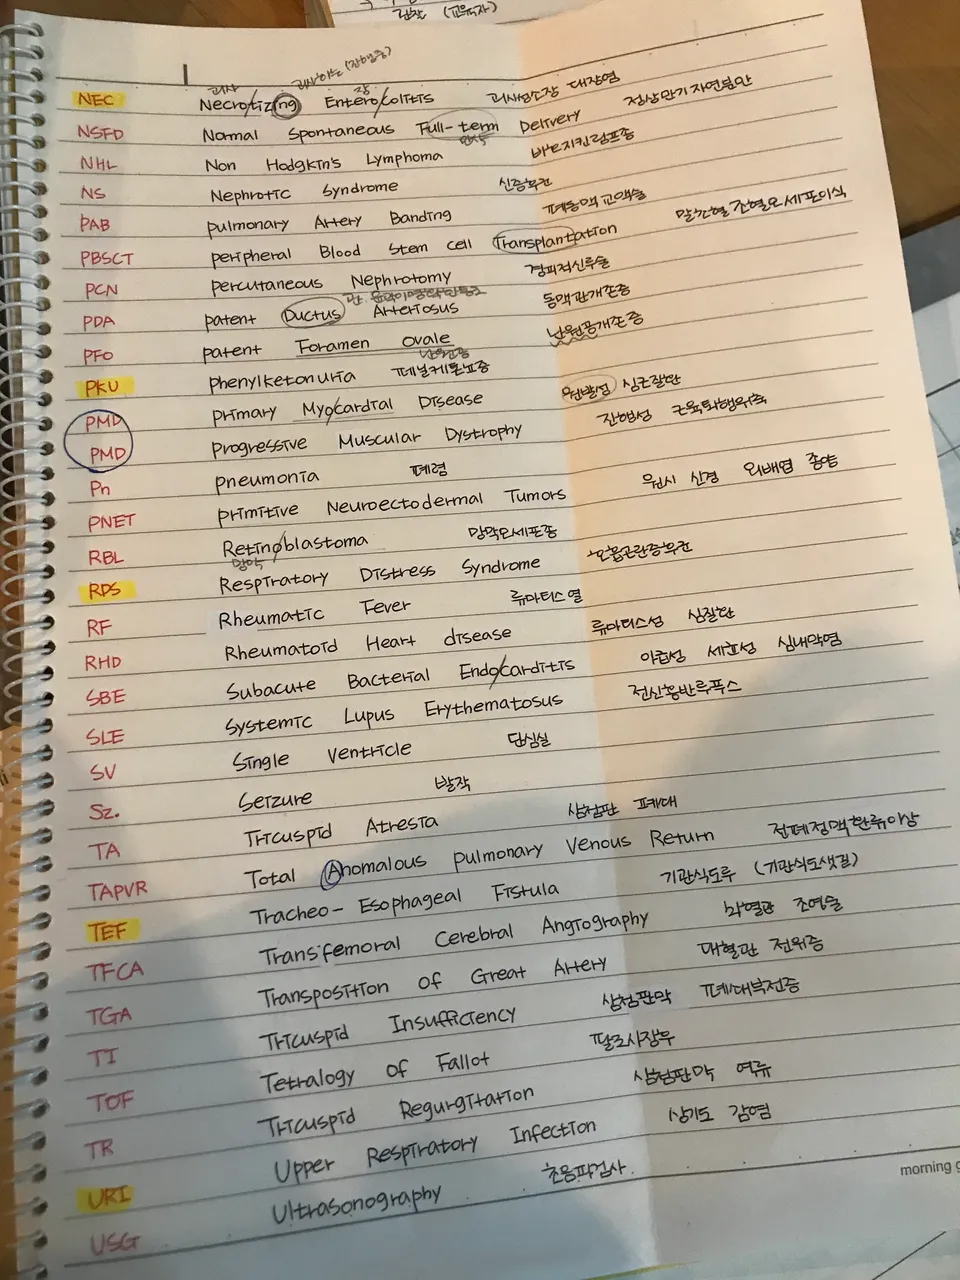 감찰 (교육자)
괴사 괴사하는 (진행중) 장
NEC Necrotizing Enterocolitis 괴사성소장 대장염
NSFD Normal Spontaneous Full-term Delivery 정상만기자연분만
만삭
NHL Non Hodgkin's Lymphoma 비호지킨림프종
NS Nephrotic Syndrome 신증후군
PAB pulmonary Artery Banding 폐동맥교액술
PBSCT peripheral Blood Stem cell Transplantation 말초혈조혈모세포이식
PCN percutaneous Nephrotomy 경피적신루술
PDA patent Ductus Arteriosus 동맥관개존증
PFO patent Foramen ovale 난원공개존증
난원공
PKU phenylketonuria 페닐케톤뇨증
PMD primary Myocardial Disease 원발성 심근질환
PMD progressive Muscular Dystrophy 진행성 근육퇴행위축
Pn pneumonia 폐렴
PNET primitive Neuroectodermal Tumors 원시 신경 외배엽 종양
RBL Retinoblastoma 망막모세포종
망막
RDS Respiratory Distress Syndrome 호흡곤란증후군
RF Rheumatic Fever 류마티스열
RHD Rheumatoid Heart disease 류마티스성 심질환
SBE Subacute Bacterial Endocarditis 아급성 세균성 심내막염
SLE Systemic Lupus Erythematosus 전신홍반루푸스
SV Single Ventricle 단심실
Sz. Seizure 발작
TA Tricuspid Atresia 삼첨판 폐쇄
TAPVR Total Anomalous pulmonary Venous Return 전폐정맥환류이상
TEF Tracheo-Esophageal Fistula 기관식도루 (기관식도샛길)
TFCA Transfemoral Cerebral Angiography 뇌혈관 조영술
TGA Transposition of Great Artery 대혈관 전위증
TI Tricuspid Insufficiency 삼첨판막 폐쇄부전증
TOF Tetralogy of Fallot 팔로사징후
TR Tricuspid Regurgitation 삼첨판막 역류
URI Upper Respiratory Infection 상기도 감염
USG Ultrasonography 초음파검사
morning g